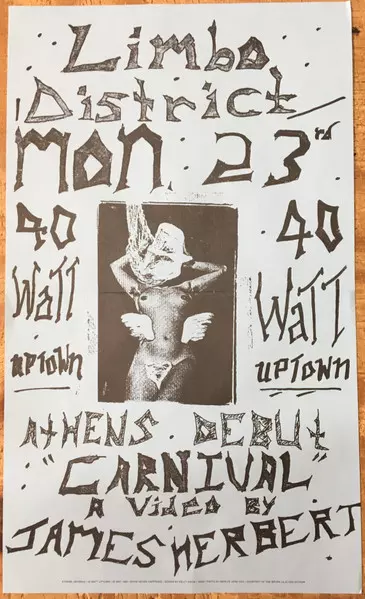 Limbo
District
MON. 23rd
40
WaTT
UPTOWN
40
WaTT
UPTOWN
ATHENS DEBUT
"CARNIVAL"
A VIDEO BY
JAMES HERBERT